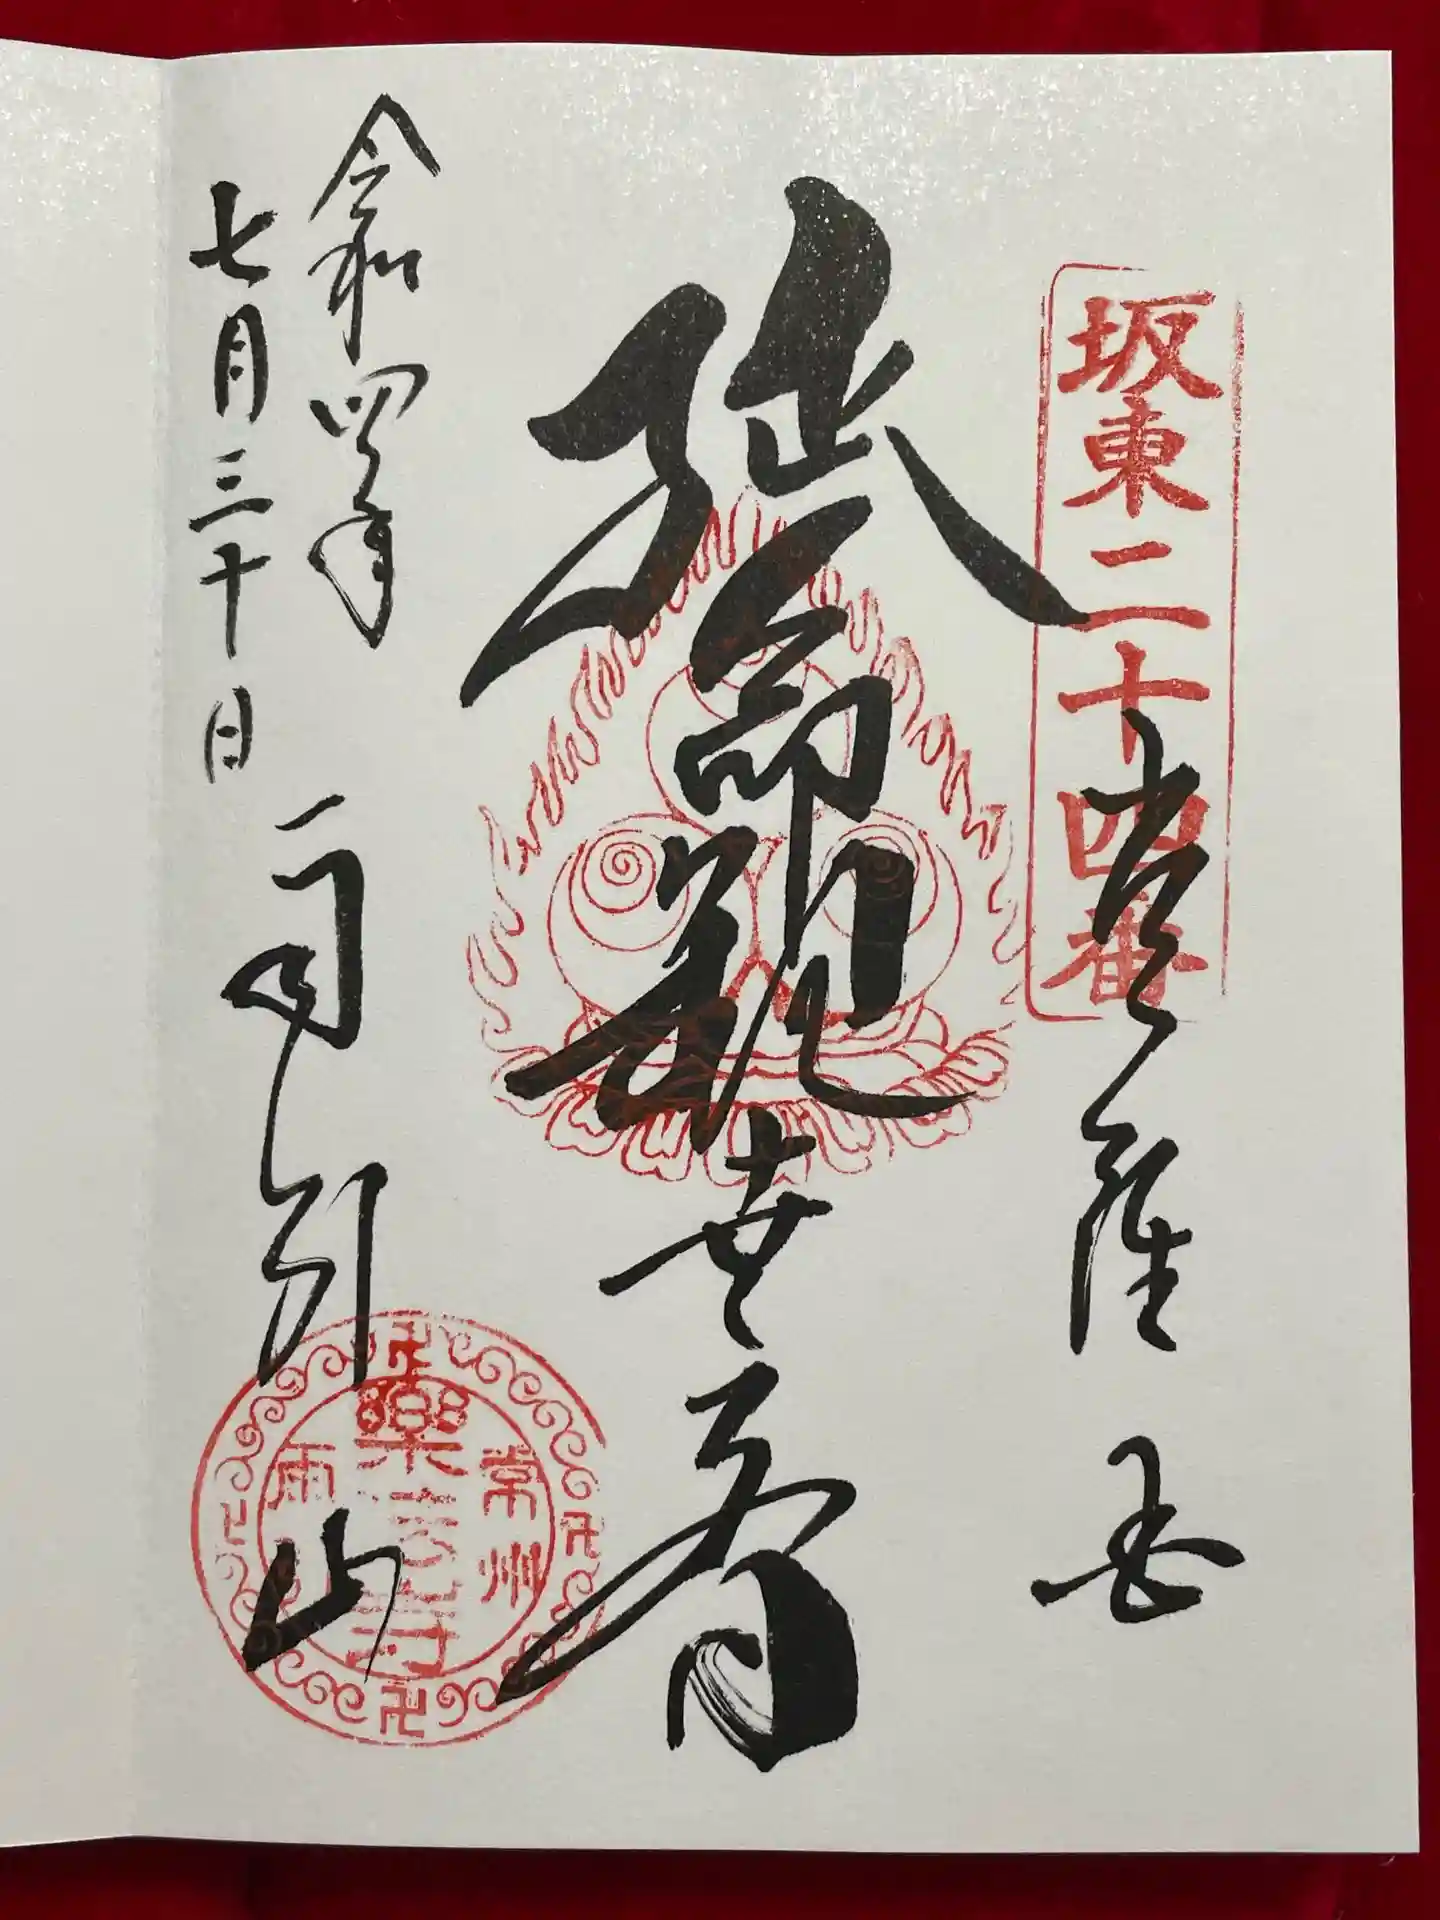 坂東二十四番
常陸国
延命観世音
令和四年
七月三十日
雨引山
常州
樂法寺